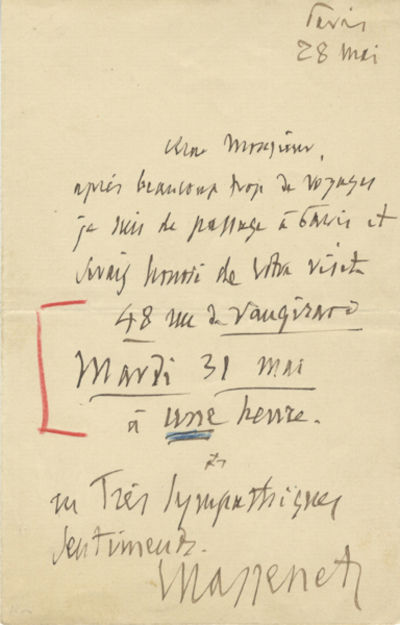 Paris
28 Mai
Cher Monsieur,
après beaucoup trop de voyages
je suis de passage à Paris et
serais honoré de votre visite
48 rue de Vaugirard
Mardi 31 mai
à une heure.
en Très Sympathiques
Sentiments.
Massenet